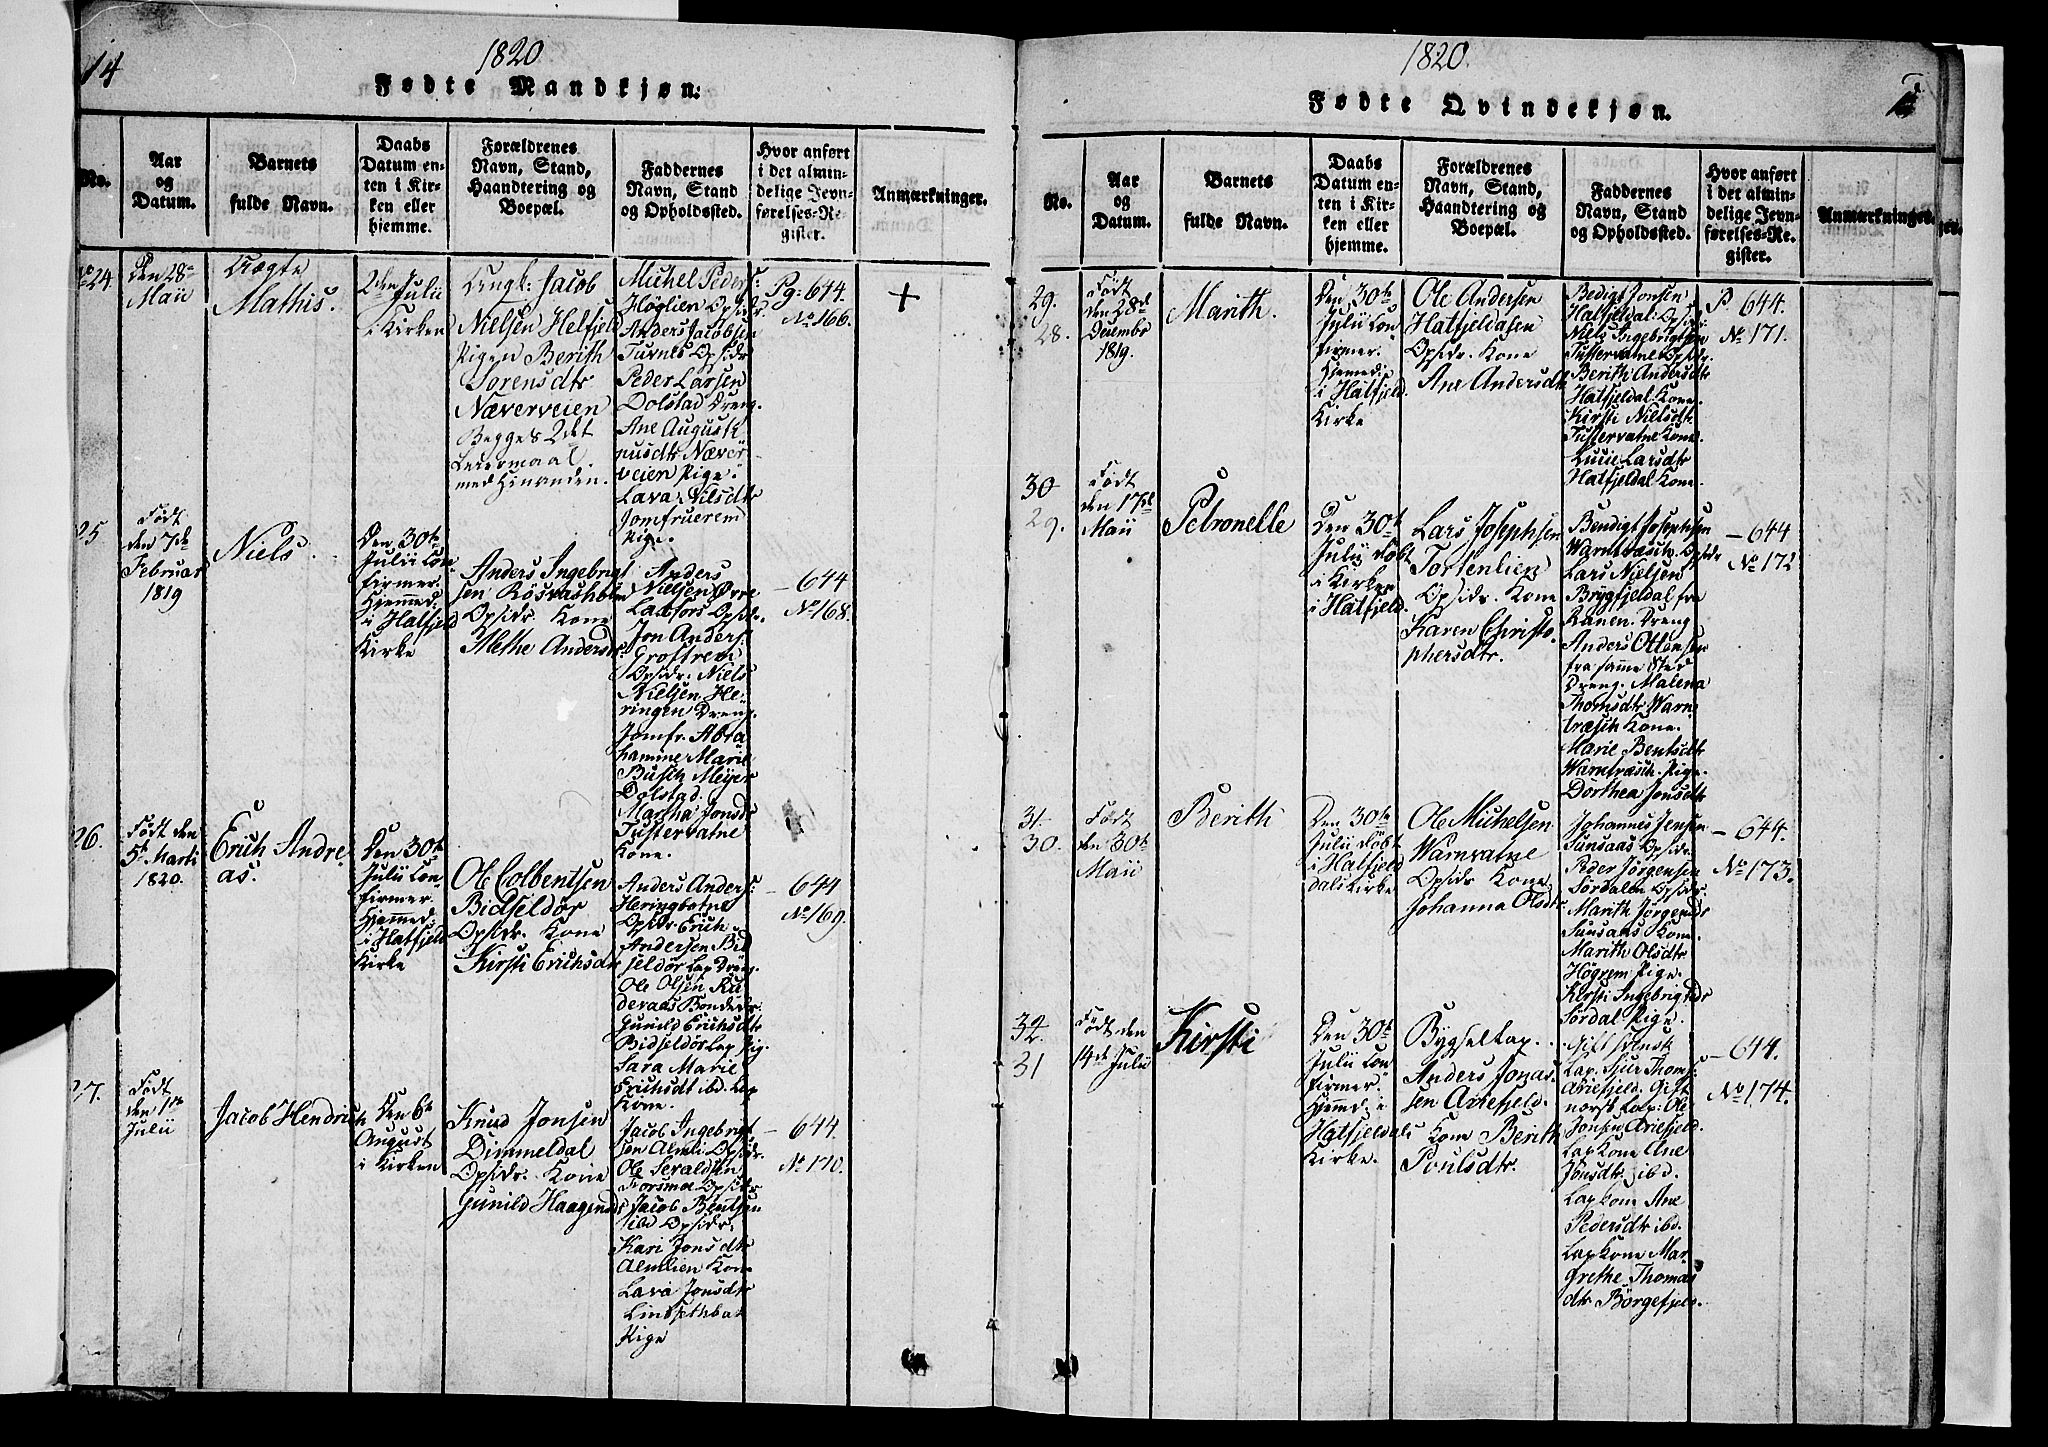 14
1820
Fødte Mandkjøn:
No.
Aar
og
Datum.
Barnets
fulde Navn.
Daabs
Datum en-
ten i Kir-
ken eller
hjemme.
Forældrenes
Navn, Stand,
Haandtering og
Boepæl.
Faddernes
Navn, Stand
og Opholdssted.
Hvor anført
i det almin-
delige Jevn-
førelses-Re-
gister.
Anmærkninger.
No 24.
Den 28de
Maii
Uægte
Mathis.
2den Julii
i Kirken
Ungk: Jacob
Nielsen Helfjeld
Pigen Berith
Sørensdtr
Næverveien
Begges 2det
Leiermaal
med hinanden.
Michel Peders:
Høglien Opsidr.
Anders Jacobsen
Turnes Opsidr
Peder Larsen
Dolstad Dreng.
Ane August
nusdtr Næver
veien Pige.
Lava Nilsdtr
Jomfruerem
Pige.
Pg: 644.
No 166.
+
25
Født
den 7de
Februar
1819
Niels.
Den 30te
Julii Con
firmer.
Hjemmed.
i Hatfjeld
Kirke
Anders Ingebrigt
sen Røsvashbun
Opsidr. Kone
Methe Andersdr:
Anders
Nielsen Øvre
Laxfors Opsidr.
Jon Anders:
Grostrem
Opsidr. Niels
Nielsen He-
ringen Dreng.
Jomfr. Abra
hamme Marie
Busch Meyer
Dolstad.
Martha Jonsdr
Tustervatne
Kone.
- 644
No 168.
26.
Født den
5te Marti
1820.
Erich Andre
as.
Den 30te
Julii Con
firmer.
Hjemmed:
i Hatfjeld
Kirke
Ole Colbentsen
Bidseldør
Opsidr. Kone
Kirsti Erichsdtr
Anders Anders:
Heringbotne
Opsidr. Erich
Andersen Bid
seldør Lap Dreng.
Ole Olsen Ku
deraas Bonde
Gunild Erichsdtr
Bidseldør Lap Pig.
Sara Marie
Erichsdt ibd. Lap
Kone.
- 644
No 169.
27.
Født
den 1ste
Julii
Jacob Hendrich
Den 6te
August
i Kirken
Knud Jonsen
Dimmeldal
Opsidr. Kone
Gunild Haagensdr
Jacob Ingebrigt
sen Almli Opsidr.
Ole Seraldsen
Forsmoe Opsidr
Jacob Bentsen
ibd Opsidr.
Kari Jonsdtr
Almlien Kone
Lava Jonsdtr
Lindsethbak
Pige
- 644.
No 170.
1820.
Fødte Qvindekjøn.
No.
Aar
og
Datum.
Barnets
fulde Navn.
Daabs
Datum en-
ten i Kir-
ken eller
hjemme.
Forældrenes
Navn, Stand,
Haandtering og
Boepæl.
Faddernes
Navn, Stand
og Opholdssted.
Hvor anført
i det almin-
delige Jevn-
førelses-Re-
gister.
Anmærkninger.
29.
28.
Født
den 28de
Decembr
1819.
Marith.
Den 30te
Julii Con
firmer.
Hjemed:
i Hatfjeld
Kirke
Ole Andersen
Hatfjeldasen
Opsidr. Kone
Ane Andersdtr
Bedigt Jonsen
Hatfjeldal: Opsidr:
Niels Ingebrigtsen
Tustervatne Opsidr.
Berith Andersdtr
Hatfjeldal Kone.
Kirsti Nielsdtr
Tustervatne Kone.
Lucie Larsdtr
Hatfjeldal Kone.
P. 644.
No 171.
30
29.
Født
den 17de
Maii
Petronelle
Den 30te
Julii døbt
i Kirken
i Hatfjeld.
Lars Josephsen
Tortenlien
Opsidr. Kone
Karen Christo-
phersdtr.
Bendigt Josephsen
Warntræsk Opsidr
Lars Nielsen
Brygfjeldal fra
Ranen. Dreng
Anders Ottensen
fra samme Sted
Dreng. Malena
Thomsdtr Warn
træsch Kone.
Marie Bentsdtr
Warntræsch. Pige.
Dorthea Jonsdtr
- 644
No 172
31
30.
Født
den 30te
Maii
Berith
Den 30te
Julii døbt
i Hatfjeld
dals Kirke
Ole Michelsen
Warnvatne
Opsidr Kone
Johanna Olsdtr
Johannes Jensen
Sunsaas Opsidr.
Peder Jørgensen
Sørdalen Opsidr.
Marith Jørgensdr
Sunsaas Kone.
Marith Olsdtr
Høgrem Pige.
Kirsti Ingebrigtsdr
Sørdal. Pige.
- 644.
No 173.
32.
31
Født den
14de Julii
Kirsti
Den 30te
Julii Con
firmer.
Hjemd: i
Hatfjeldals
Kirke.
Bygsellap.
Anders Jonas-
sen Ariefjeld.
Kone Berith
Poulsdtr.
Gift svensk
Lap. Sjur Thoms:
Ariefjeld. Gift
norsk Lap: Ole
Jonsen Ariefjeld.
Lapkone Ane
Jonsdtr ibd.
Lapkone Ane
Pedersdtr ibd.
Lapkone Mar-
grethe Thomas
dtr Børgefjeld.
- 644.
No 174.